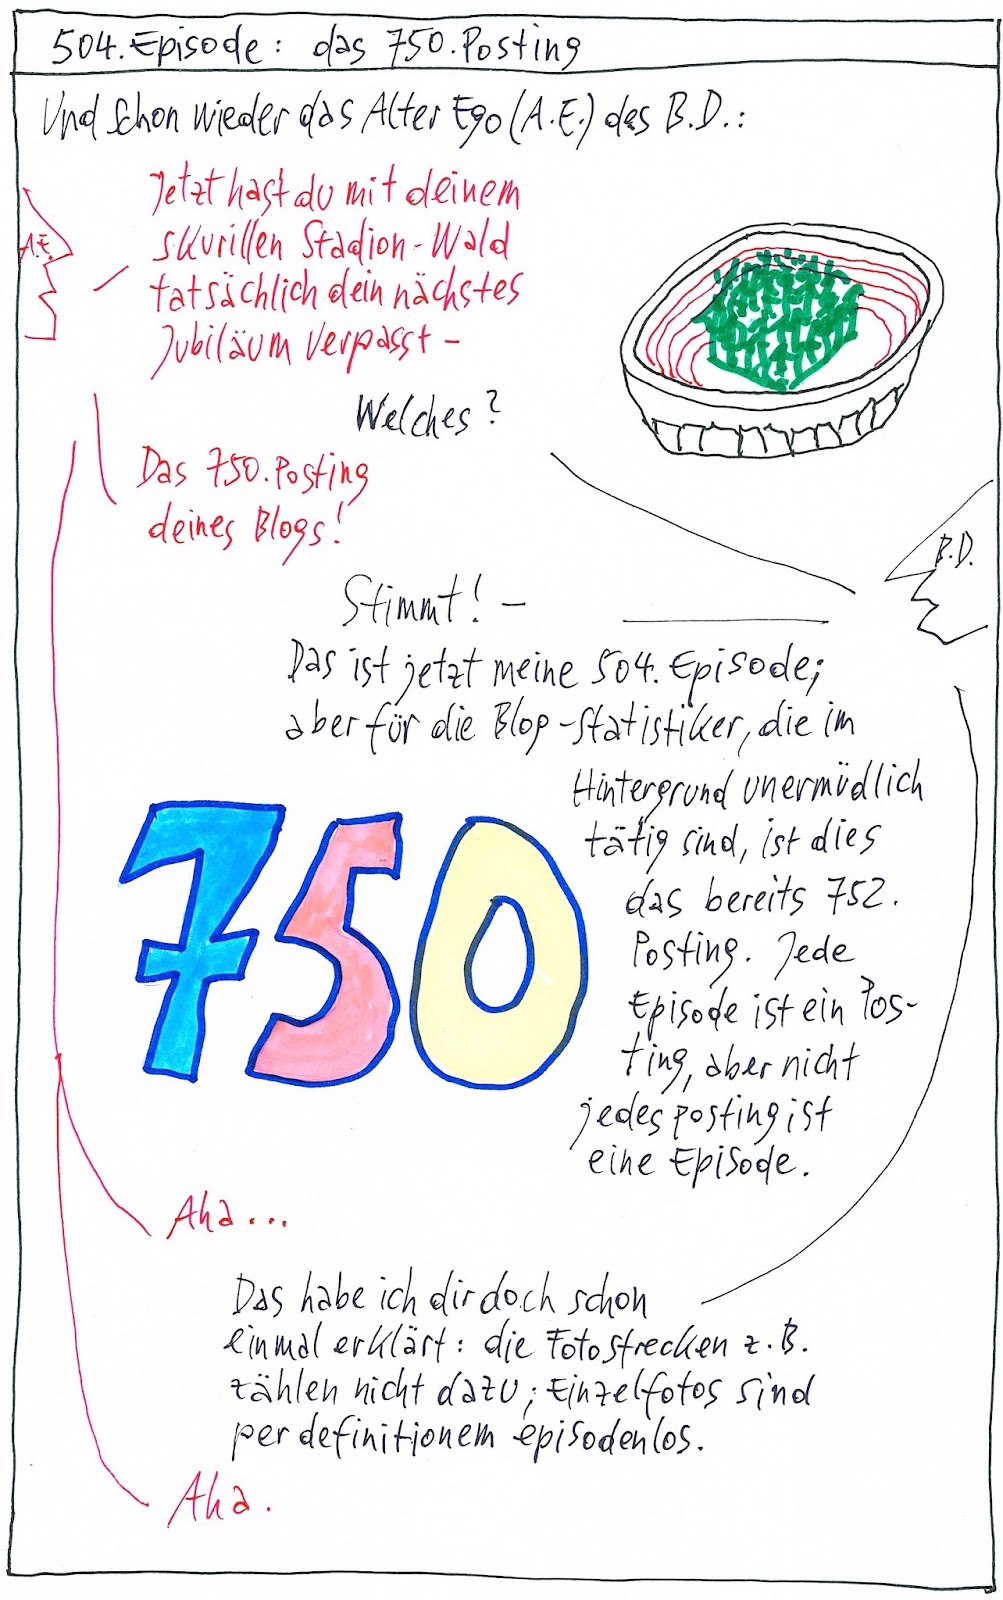 504. Episode: das 750. Posting
Und schon wieder das Alter Ego (A.E.) des B.D.:
Jetzt hast du mit deinem
skurillen Stadion-Wald
tatsächlich dein nächstes
Jubiläum verpasst –
A.E.
Welches?
Das 750. Posting
deines Blogs!
B.D.
Stimmt! –
Das ist jetzt meine 504. Episode;
aber für die Blog-Statistiker, die im
Hintergrund unermüdlich
tätig sind, ist dies
das bereits 752.
Posting. Jede
Episode ist ein Pos-
ting, aber nicht
jedes Posting ist
eine Episode.
750
Aha...
Das habe ich dir doch schon
einmal erklärt: die Fotostrecken z.B.
zählen nicht dazu; Einzelfotos sind
per definitionem episodenlos.
Aha.